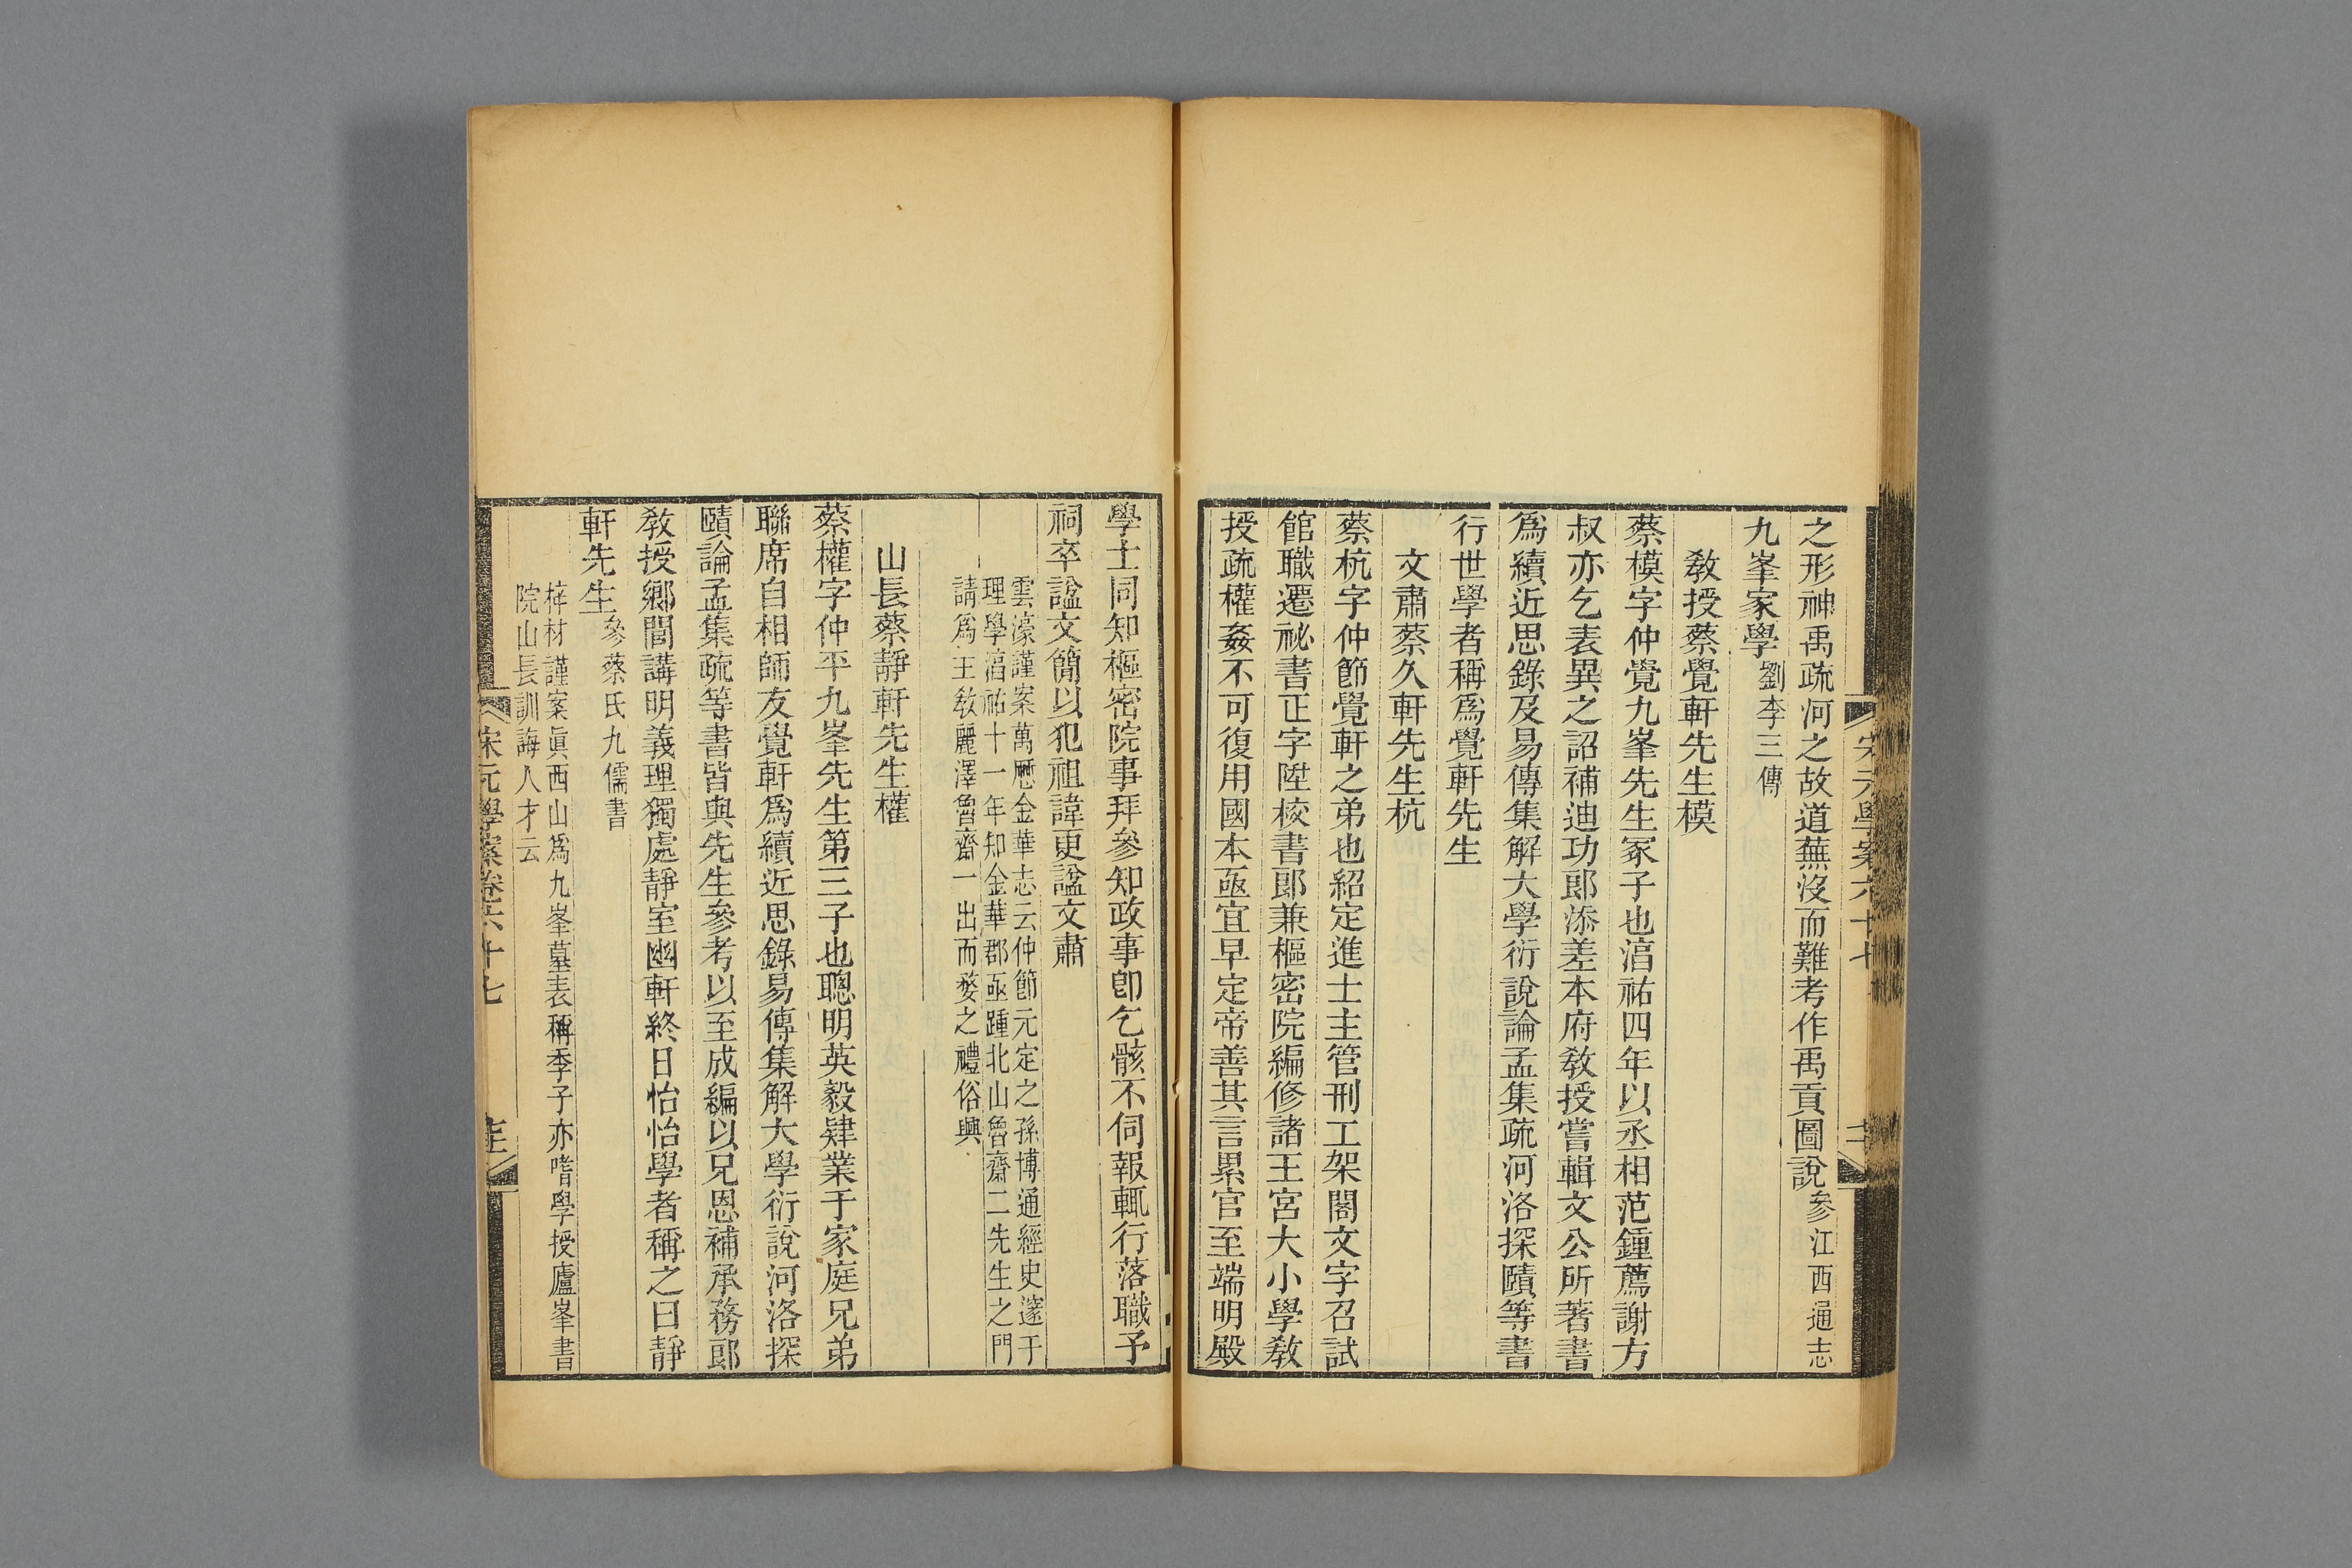 之形神禹疏河之故道蕪沒而難考作禹貢圖說參江西通志
九峯家學劉李三傳
敎授蔡覺軒先生模
蔡模字仲覺九峯先生冢子也湻祐四年以丞相范鍾薦謝方
叔亦乞表異之詔補迪功郎添差本府敎授嘗輯文公所著書
爲續近思錄及易傳集解大學衍說論孟集疏河洛探賾等書
行世學者稱爲覺軒先生
文肅蔡久軒先生杭
蔡杭字仲節覺軒之弟也紹定進士主管刑工架閣文字召試
館職遷祕書正字陞校書郎兼樞密院編修諸王宮大小學敎
授疏權姦不可復用國本亟宜早定帝善其言累官至端明殿
學士同知樞密院事拜參知政事卽乞骸不伺報輒行落職予
祠卒諡文簡以犯祖諱更諡文肅
雲濠謹案萬厯金華志云仲節元定之孫博通經史邃于
理學湻祐十一年知金華郡亟踵北山魯齋二先生之門
請爲主敎麗澤魯齋一出而婺之禮俗興
山長蔡靜軒先生權
蔡權字仲平九峯先生第三子也聰明英毅肄業于家庭兄弟
聯席自相師友覺軒爲續近思錄易傳集解大學衍說河洛探
賾論孟集疏等書皆與先生參考以至成編以兄恩補承務郎
敎授鄉閭講明義理獨處靜室幽軒終日怡怡學者稱之曰靜
軒先生參蔡氏九儒書
梓材謹案眞西山爲九峯墓表稱季子亦嗜學授廬峯書
院山長訓誨人才云
宋元學案卷六十七